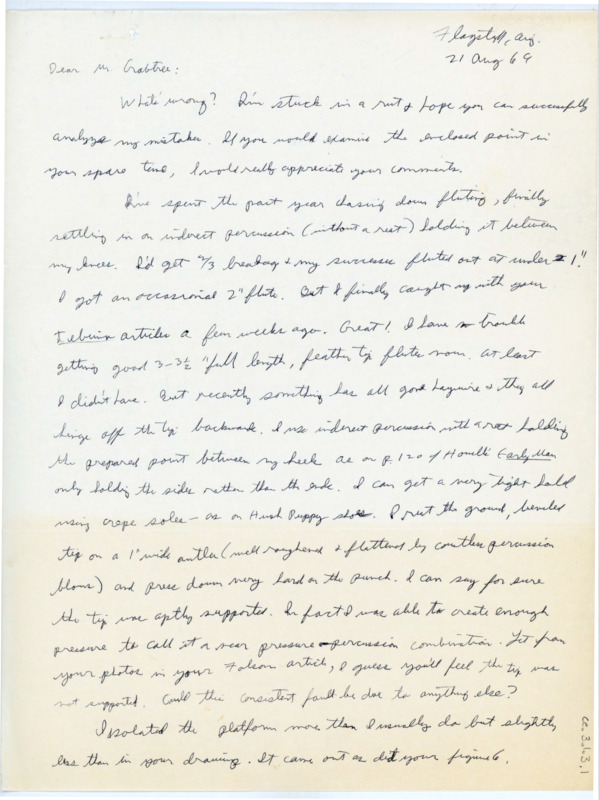 Flagstaff, Ariz.
21 Aug 69
Dear Mr Crabtree:
What's wrong? I'm stuck in a rut & hope you can successfully
analyze my mistakes. If you would examine the enclosed point in
your spare time, I would really appreciate your comments.
I've spent the past year chasing down fluting, finally
settling in on indirect percussion (without a rest) holding it between
my knees. I'd get 2/3 breakage & my successes fluted out at under 1".
I got an occassional 2" flute. But I finally caught up with your
Tebiwa articles a few weeks ago. Great! I have no trouble
getting good 3-3½" full length, feather tip flutes now. At last
I didn't have. But recently something has all gone haywire & they all
hinge off the tip backwards. I use indirect percussion with a rest holding
the prepared point between my heels as on p. 120 of Howell's Early Man
only holding the sides rather than the ends. I can get a very tight hold
using crepe soles - as on Hush Puppy shoes. I rest the ground, beveled
tip on a 1" wide antler (well roughened & flattened by countless percussion
blows) and press down very hard on the punch. I can say for sure
the tip was aptly supported. In fact I was able to create enough
pressure to call it a near pressure-percussion combination. Yet from
your photos in your Folsom article, I guess you'll feel the tip was
not supported. Could this consistent fault be due to anything else?
I isolated the platform more than I usually do but slightly
less than in your drawing. It came out as did your figure 6.
cc.3.13.1